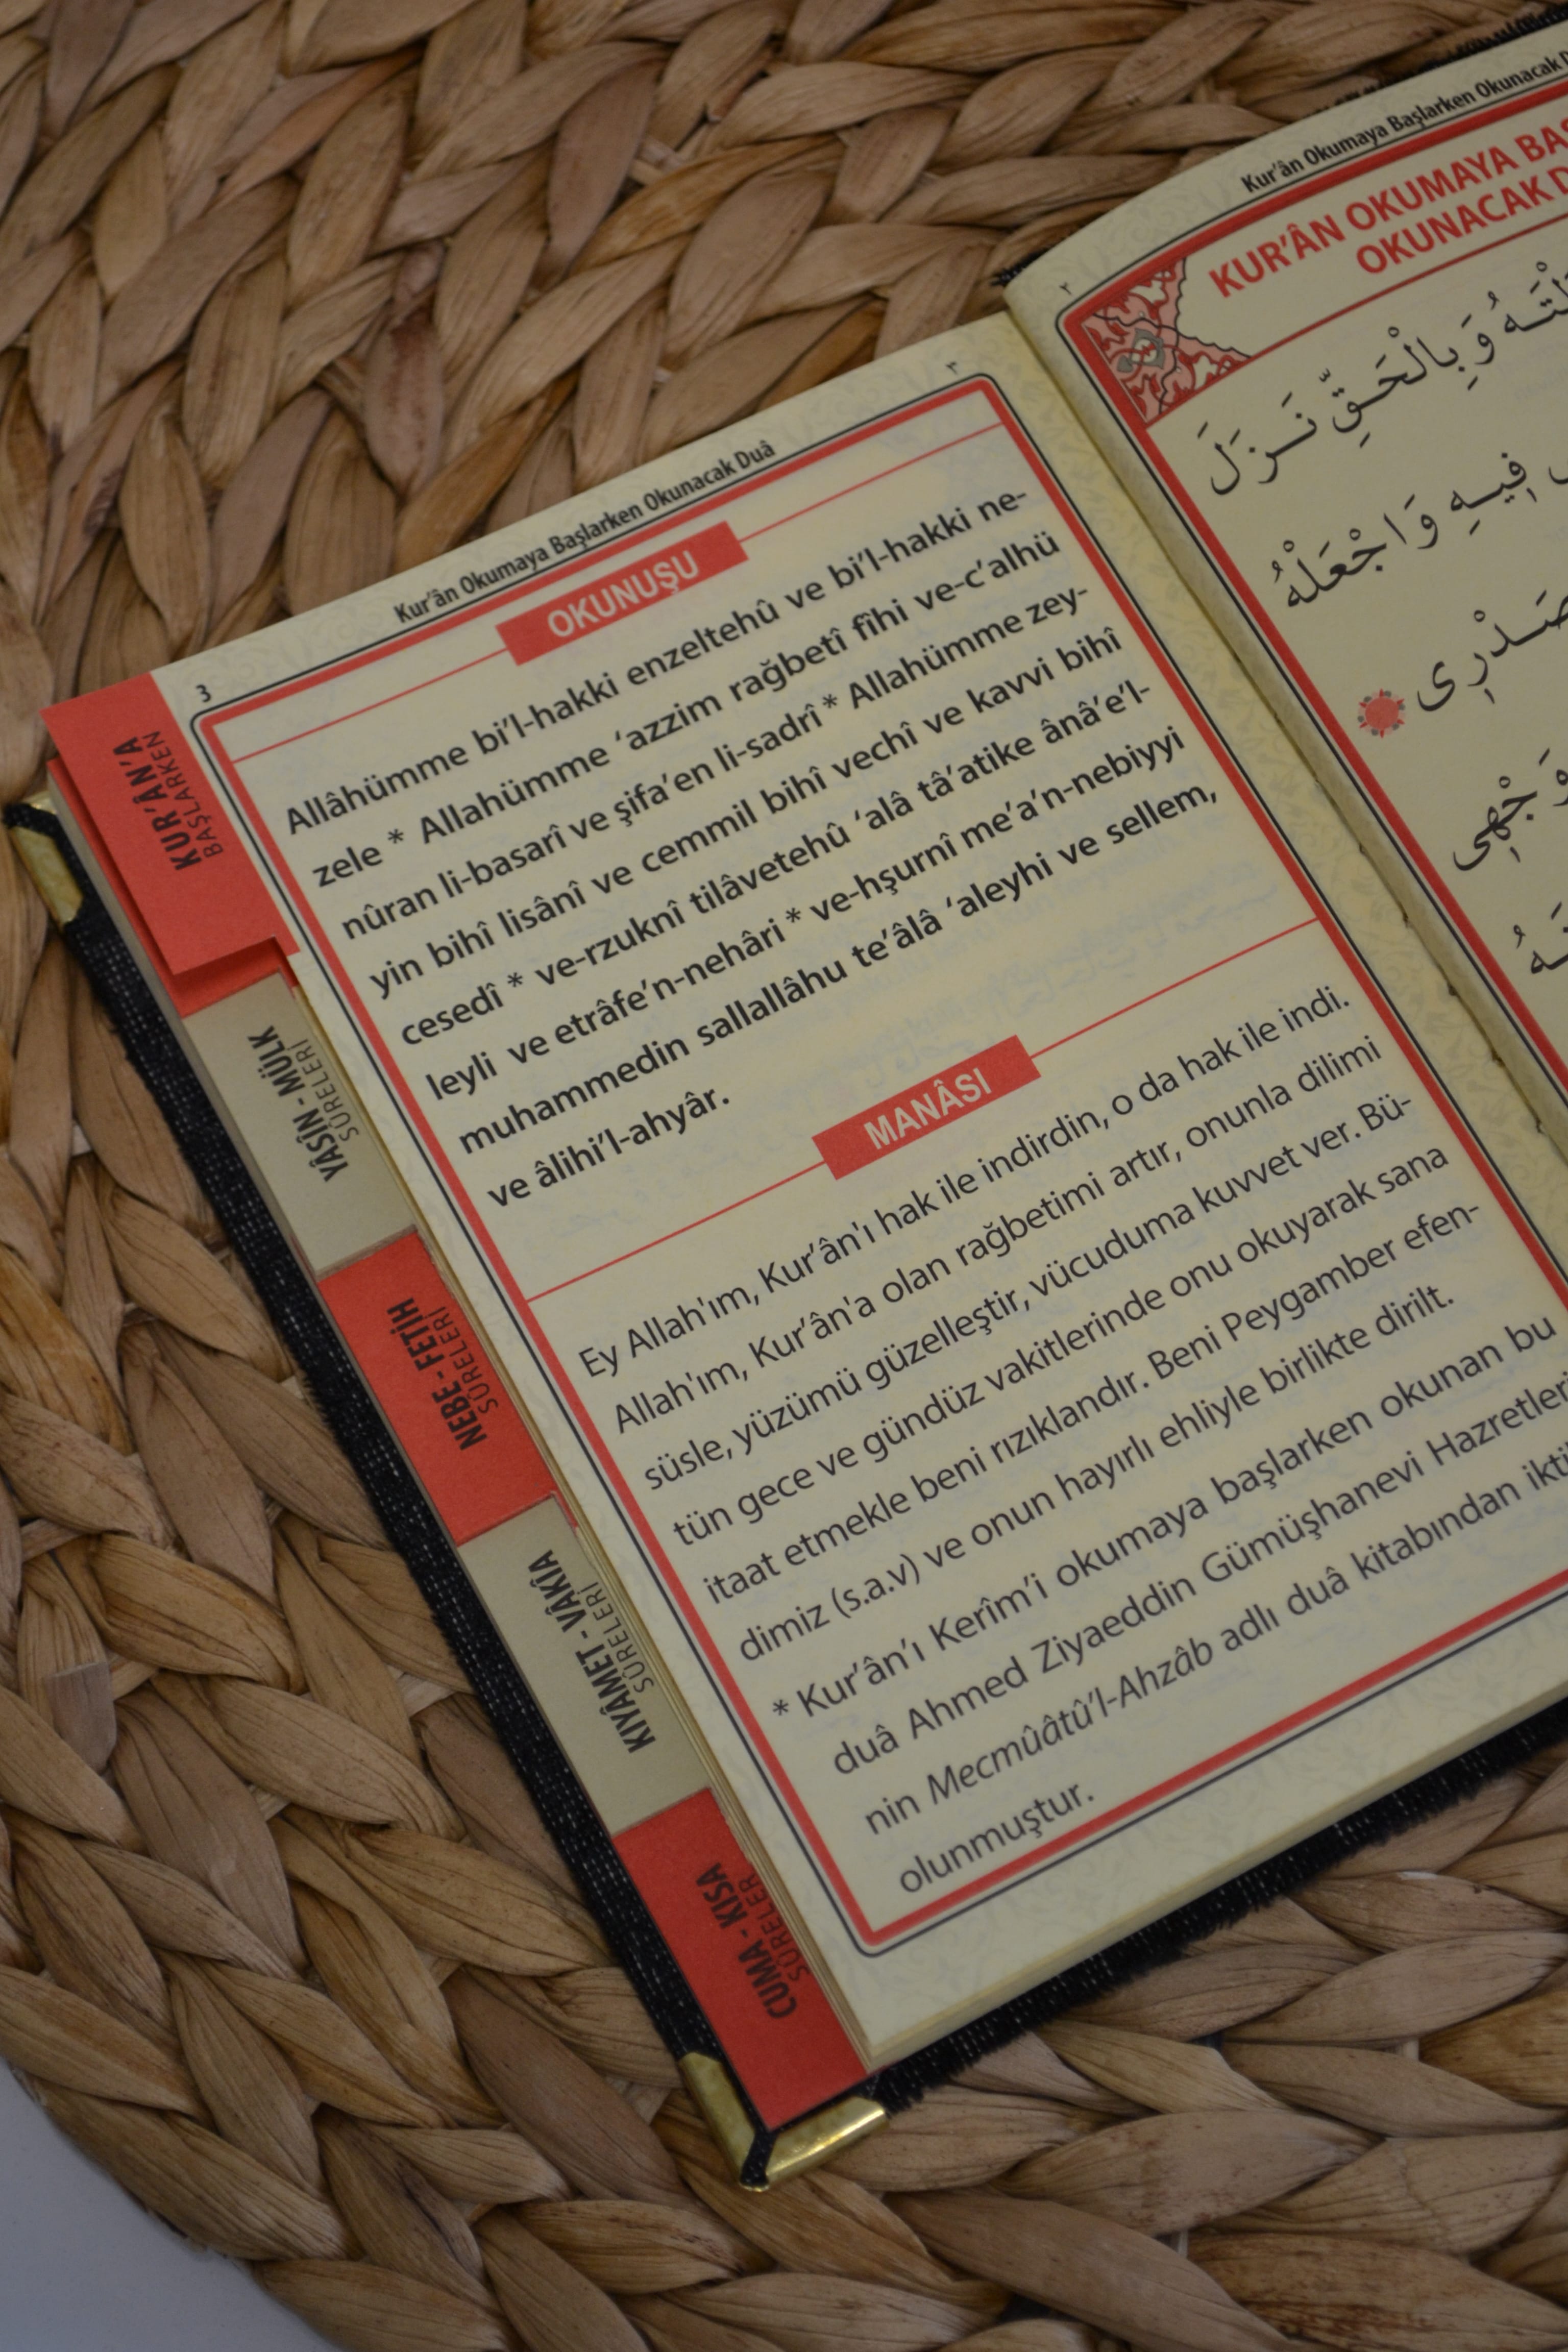 Kur'ân Okumaya Başlarken Okunacak Duâ
3
٣
OKUNUŞU
Allâhümme bi'l-hakki enzeltehû ve bi'l-hakki ne-
zele * Allahümme 'azzim rağbetî fîhi ve-c'alhü
nûran li-basarî ve şifa'en li-sadrî * Allahümme zey-
yin bihî lisânî ve cemmil bihî vechî ve kavvi bihî
cesedî * ve-rzuknî tilâvetehû 'alâ tâ'atike ânâ'e'l-
leyli ve etrâfe'n-nehâri * ve-hşurnî me'a'n-nebiyyi
muhammedin sallallâhu te'âlâ 'aleyhi ve sellem,
ve âlihi'l-ahyâr.
MANÂSI
Ey Allah'ım, Kur'ân'ı hak ile indirdin, o da hak ile indi.
Allah'ım, Kur'ân'a olan rağbetimi artır, onunla dilimi
süsle, yüzümü güzelleştir, vücuduma kuvvet ver. Bü-
tün gece ve gündüz vakitlerinde onu okuyarak sana
itaat etmekle beni rızıklandır. Beni Peygamber efen-
dimiz (s.a.v) ve onun hayırlı ehliyle birlikte dirilt.
* Kur'ân'ı Kerîm'i okumaya başlarken okunan bu
duâ Ahmed Ziyaeddin Gümüşhanevi Hazretleri
nin Mecmûâtû'l-Ahzâb adlı duâ kitabından
olunmuştur.
KUR'ÂN'A
BAŞLARKEN
YÂSÎN - MÜLK
SÛRELERİ
NEBE - FETİH
SÛRELERİ
KIYÂMET - VÂKÍA
SÛRELERİ
CUMA - KISA
SÛRELER
Kur'ân Okumaya Başlarken Okunacak
٢
KUR'ÂN OKUMAYA
OKUNACAK
وَبِالْحَقِّ نَزَلَ
فِيهِ وَاجْعَلْهُ
صَدْرِى
وَجْهِى